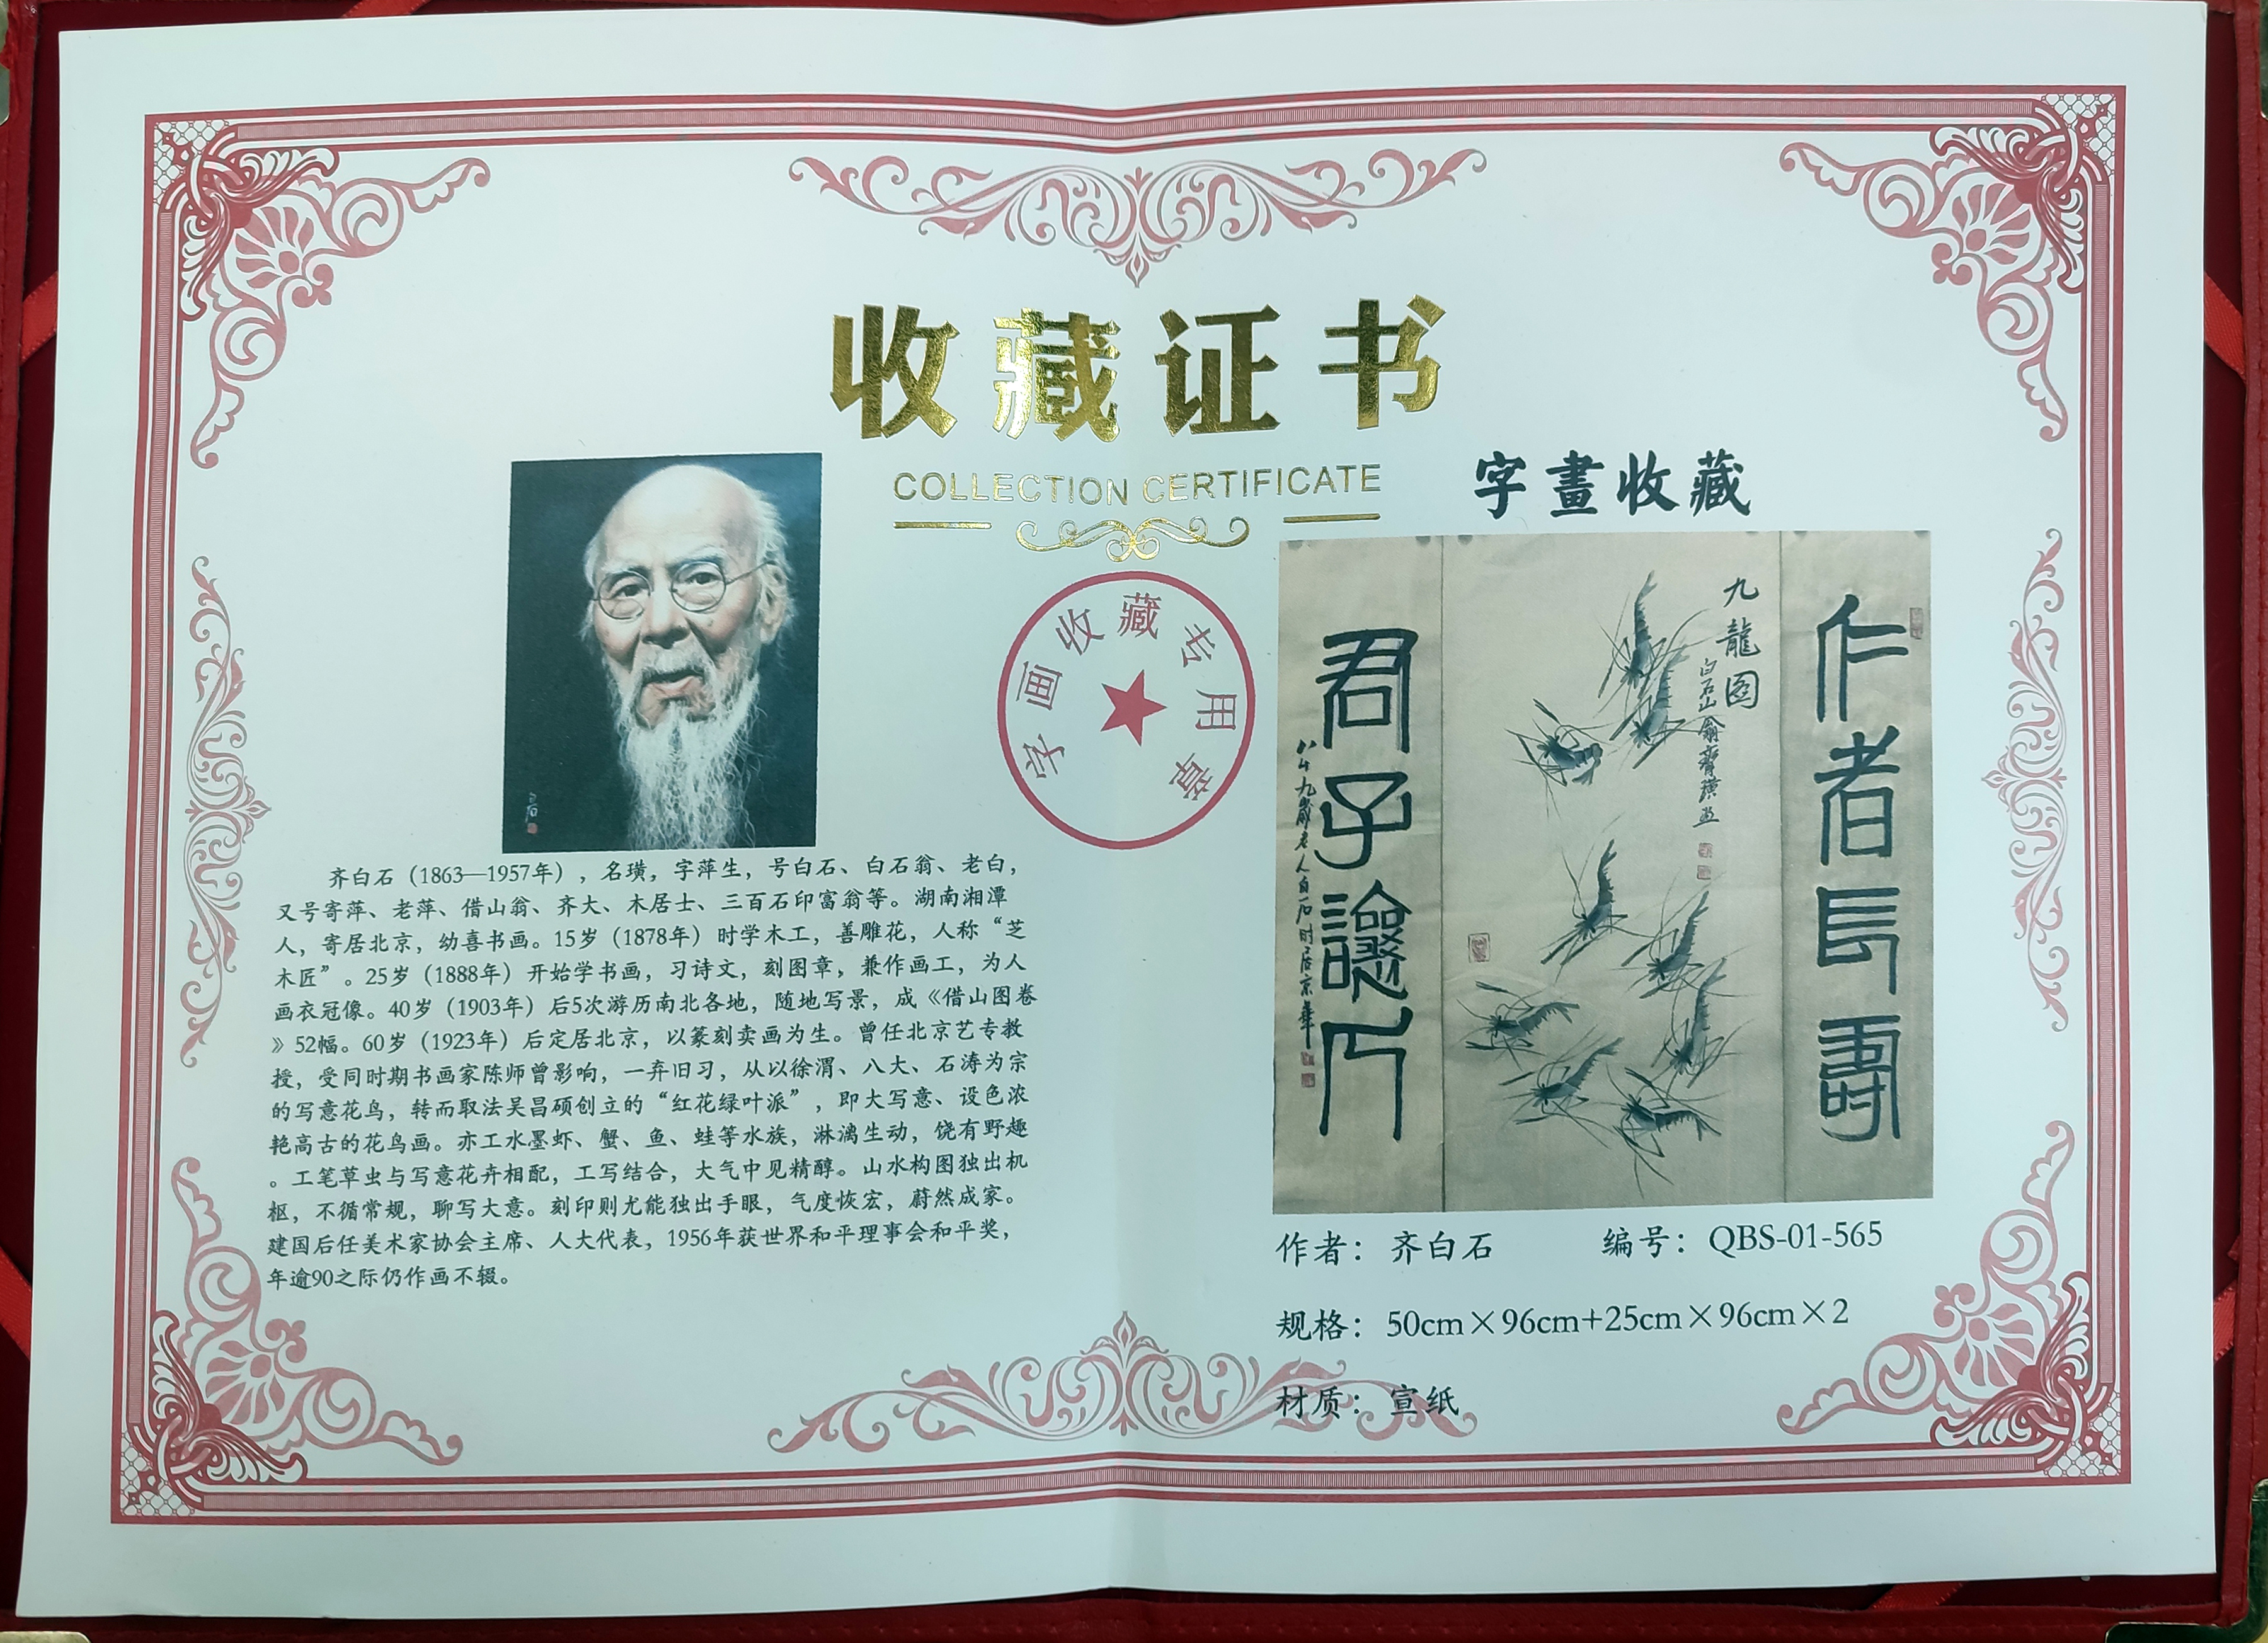 收藏证书
COLLECTION CERTIFICATE
字畫收藏
字画收藏专用章
齐白石（1863—1957年），名璜，字萍生，号白石、白石翁、老白，
又号寄萍、老萍、借山翁、齐大、木居士、三百石印富翁等。湖南湘潭
人，寄居北京，幼喜书画。15岁（1878年）时学木工，善雕花，人称“芝
木匠”。25岁（1888年）开始学书画，习诗文，刻图章，兼作画工，为人
画衣冠像。40岁（1903年）后5次游历南北各地，随地写景，成《借山图卷
》52幅。60岁（1923年）后定居北京，以篆刻卖画为生。曾任北京艺专教
授，受同时期书画家陈师曾影响，一弃旧习，从以徐渭、八大、石涛为宗
的写意花鸟，转而取法吴昌硕创立的“红花绿叶派”，即大写意、设色浓
艳高古的花鸟画。亦工水墨虾、蟹、鱼、蛙等水族，淋漓生动，饶有野趣
。工笔草虫与写意花卉相配，工写结合，大气中见精醇。山水构图独出机
枢，不循常规，聊写大意。刻印则尤能独出手眼，气度恢宏，蔚然成家。
建国后任美术家协会主席、人大代表，1956年获世界和平理事会和平奖，
年逾90之际仍作画不辍。
作者長壽
九龍图
白石山翁齊璜画
君子讓人
八十九歲老人白石时居京華
作者：齐白石 编号：QBS-01-565
规格：50cm×96cm+25cm×96cm×2
材质：宣纸